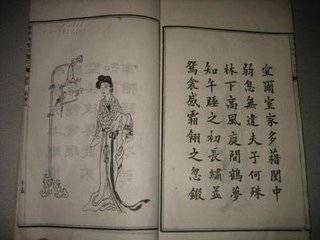 宜爾室家多藉閨中
弱息無違夫子何殊
林下高風庭間鶴夢
知午睡之初長繡並
鴛衾感霜翎之忽鎩